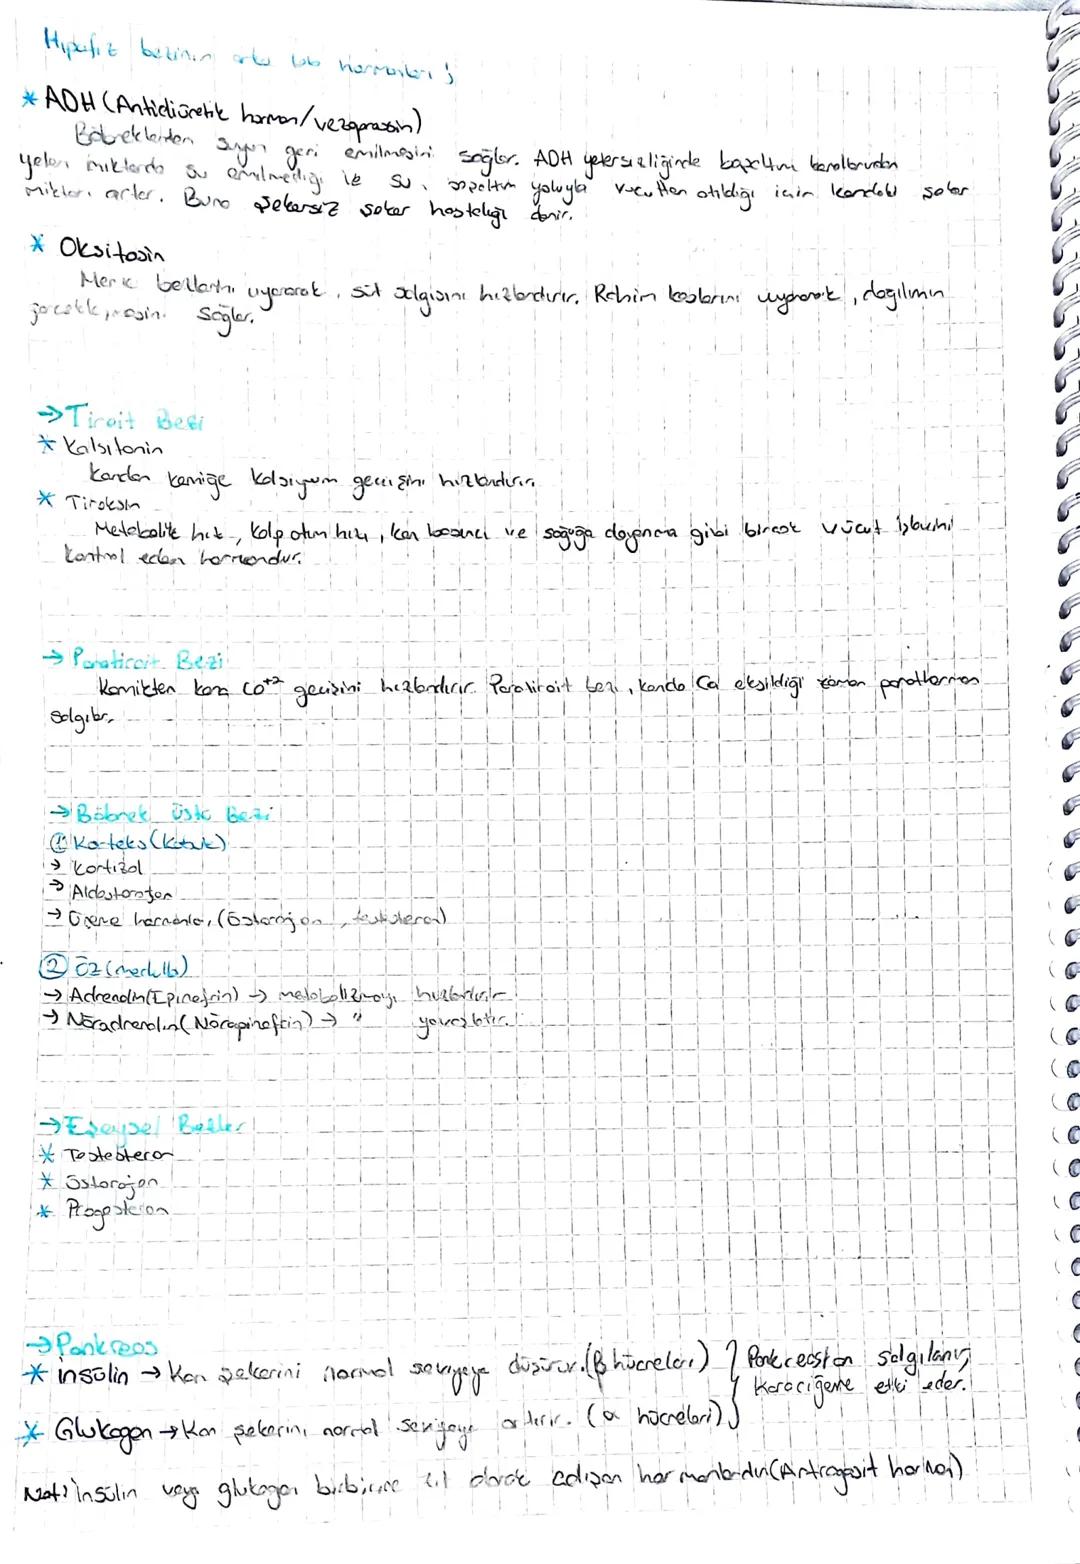 Hipofiz bezinin arka lob hormonları ;
* ADH (Antidiüretik hormon/vezopressin)
Böbreklerden suyun geri emilmesini sağlar. ADH yetersizliğinde boşaltım kanallarından
yeteri miktarda su emilmediği ve su, boşaltım yoluyla vücuttan atıldığı için kandaki şeker
miktarı artar. Buna şekersiz şeker hastalığı denir.
* Oksitosin
Meme bezlerini uyararak, süt salgısını hızlandırır. Rahim kaslarını uyararak, doğumun
gerçekleşmesini sağlar.
→ Tiroit Bezi
* Kalsitonin
Kandan kemiğe kalsiyum geçişini hızlandırır.
* Tiroksin
Metabolik hız, kalp atım hızı, kan basıncı ve soğuğa dayanma gibi birçok vücut işlevini
kontrol eden hormondur.
→ Paratiroit Bezi
Kemikten kana Ca⁺² geçişini hızlandırır. Paratiroit bezi, kanda Ca eksildiği zaman parathormon
salgılar.
→ Böbrek üstü Bezi
① Korteks (Kabuk)
→ Kortizol
→ Aldosteron
→ Üreme hormonları (Östorojen, testosteron)
② Öz (medulla)
→ Adrenalin (Epinefrin) → metabolizmayı hızlandırır
→ Nöradrenalin (Nörepinefrin) → " yavaşlatır.
→ Eşeysel Bezler
* Testesteron
* Östorojen
* Progesteron
→ Pankreas
* İnsülin → Kan şekerini normal seviyeye düşürür. (β hücreleri) } Pankreastan salgılanır,
Karaciğere etki eder.
* Glukagon → Kan şekerini normal seviyeye arttırır. (α hücreleri)
Not: İnsülin veya glukagon birbirine zıt olarak çalışan hormonlardır (Antagonist hormon)